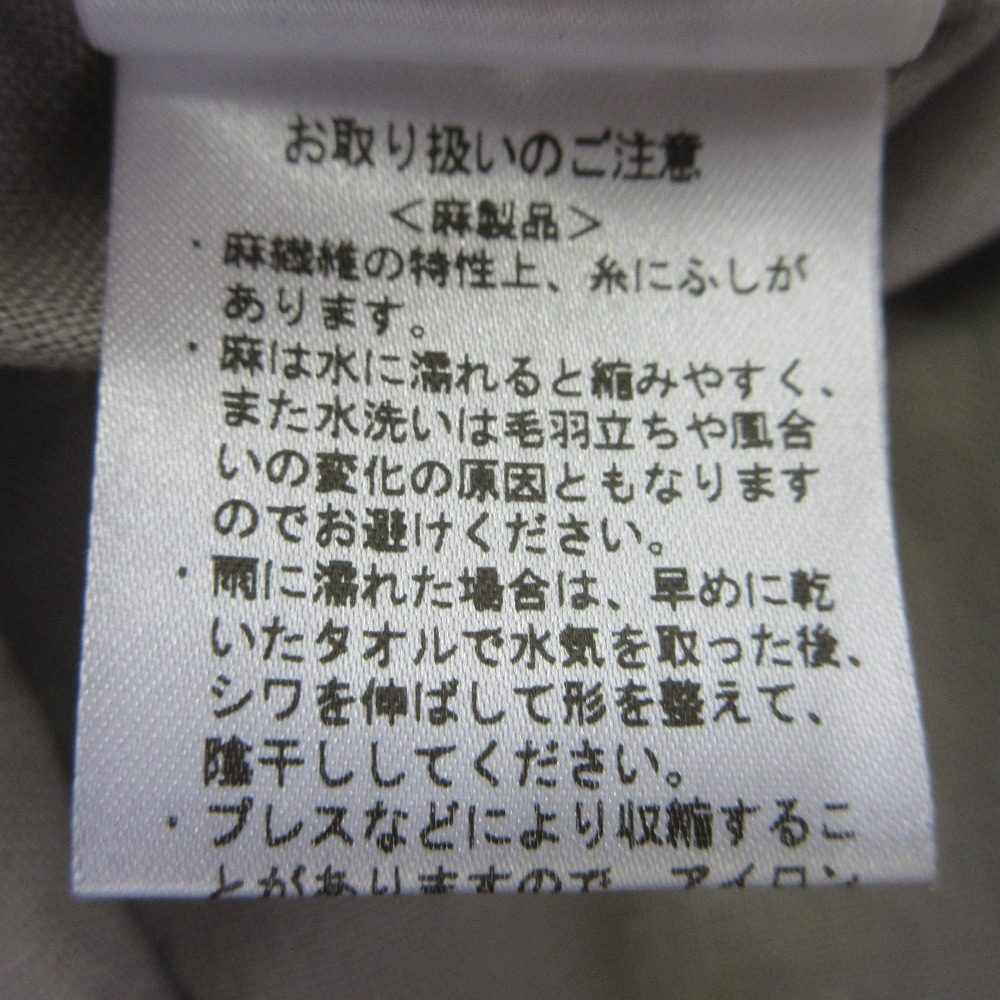 お取り扱いのご注意
＜麻製品＞
・麻繊維の特性上、糸にふしが
あります。
・麻は水に濡れると縮みやすく、
また水洗いは毛羽立ちや風合
いの変化の原因ともなります
のでお避けください。
・雨に濡れた場合は、早めに乾
いたタオルで水気を取った後、
シワを伸ばして形を整えて、
陰干ししてください。
・プレスなどにより収縮するこ
とがありますので、アイロン